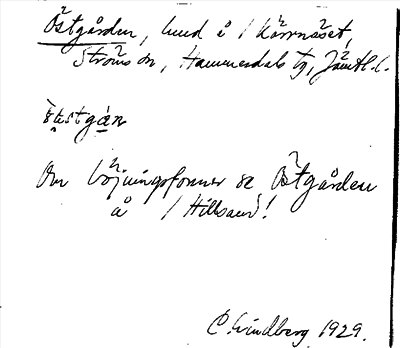 Östgården, hmd å 1 Kärrnäset,
Ströms sn, Hammerdals tg, Jämtl. l.
Om böjningsformer se Östgården
å 1 Hillsand!
C. Lindberg 1929.